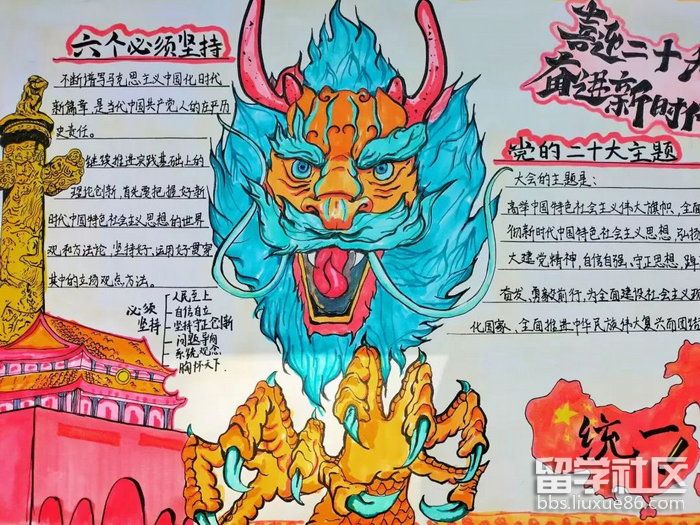 六个必须坚持
不断谱写马克思主义中国化时代
新篇章，是当代中国共产党人的庄严历
史责任。
继续推进实践基础上的
理论创新，首先要把握好新
时代中国特色社会主义思想的世界
观和方法论，坚持好、运用好贯穿
其中的立场观点方法。
必须
坚持
人民至上
自信自立
坚持守正创新
问题导向
系统观念
胸怀天下
喜迎二十大
奋进新时代
党的二十大主题
大会的主题是：
高举中国特色社会主义伟大旗帜，全面
彻新时代中国特色社会主义思想，弘扬
大建党精神，自信自强、守正思想，踔
奋发、勇毅前行，为全面建设社会主义
化国家、全面推进中华民族伟大复兴而团结
统一
留学社区
bbs.liuxue86.com